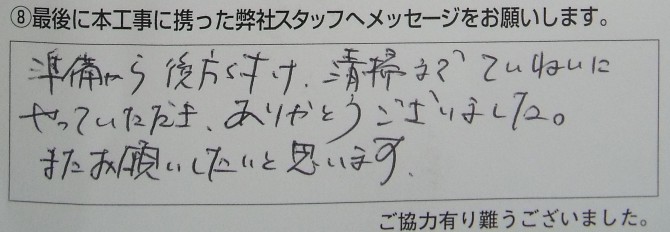 ⑧最後に本工事に携った弊社スタッフへメッセージをお願いします。
準備から後方づけ、清掃まで ていねいに
やっていただき、ありがとうございました。
またお願いしたいと思います.
ご協力有り難うございました。